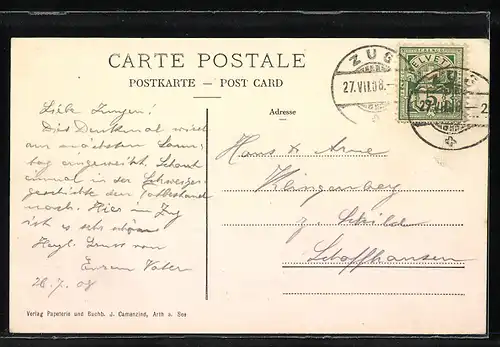 CARTE POSTALE
POSTKARTE — POST CARD
Adresse
ZUG
27.VII.08.
HELVETIA
Liebe Jungen!
Das Denkmal wird
am nächsten Sonn-
tag eingeweiht. Schaut
einmal in der Schweizer-
geschichte den
nach. Hier in Zug
ist es sehr schön
Herzl. Gruss von
Eurem Vater
26.7.08
Hans & Arne
Klingenberg
z. Schild
Schaffhausen
Verlag Papeterie und Buchb. J. Camenzind, Arth a. See